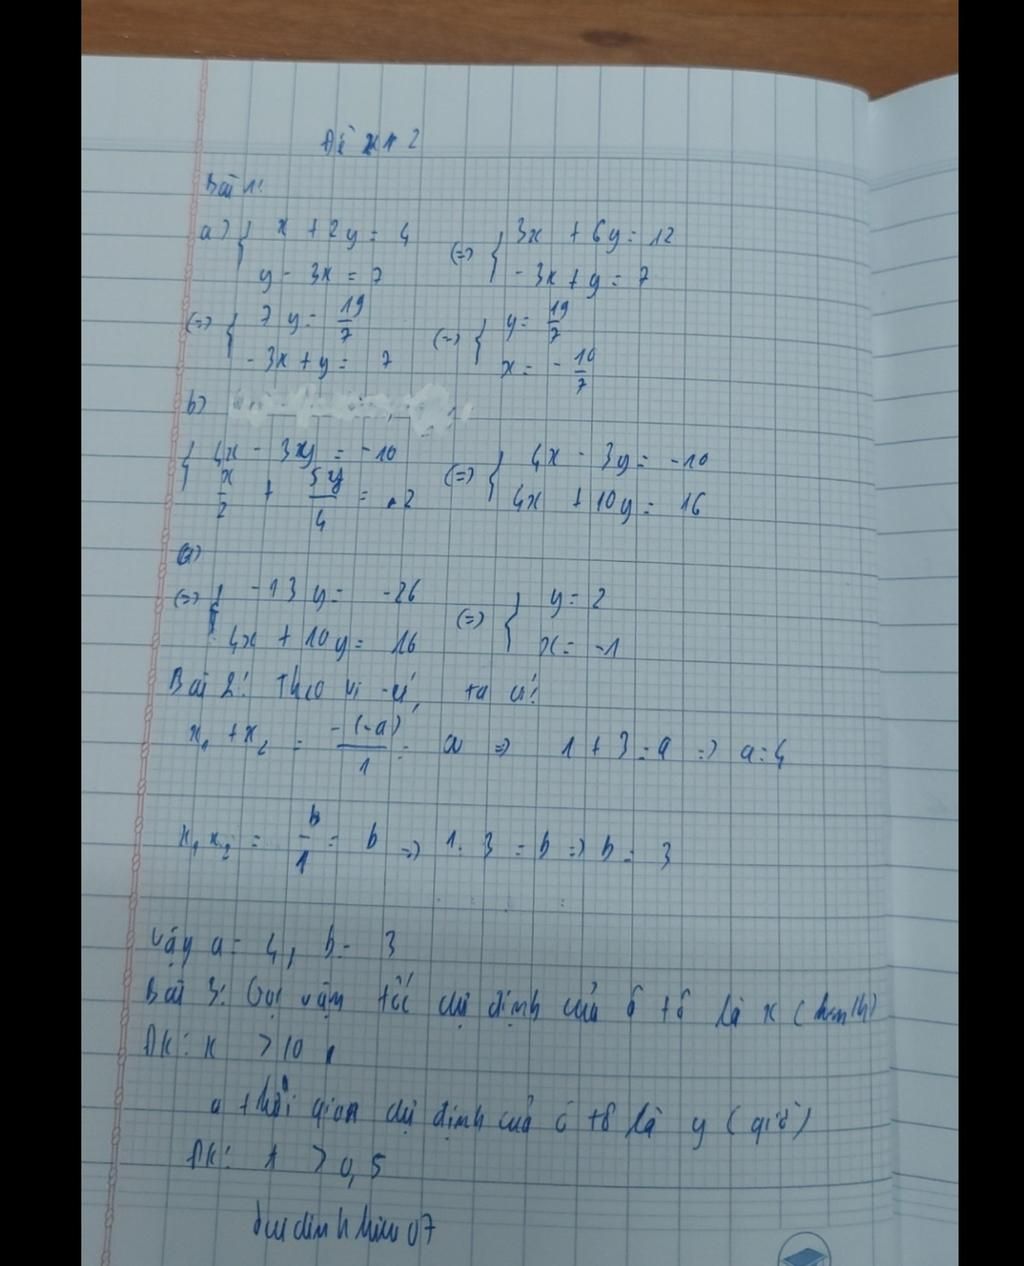 Đề 2
Bài 1:
a) { x + 2y = 4 (=) { 3x + 6y = 12
y - 3x = 7 - 3x + y = 7
(=) { 7y = 19/7 (=) { y = 19/7
- 3x + y = 7 x = - 10/7
b)
{ 4x - 3y = -10 (=) { 4x - 3y = -10
x/2 + 5y/4 = 2 4x + 10y = 16
(=) { -13y = -26 (=) { y = 2
4x + 10y = 16 x = -1
Bài 2: Theo vi-ét, ta có:
x₁ + x₂ = -(-a)/1 = a => 1 + 3 = a => a = 4
x₁ x₂ = b/1 = b => 1. 3 = b => b = 3
Vậy a = 4, b = 3
Bài 3: Gọi vận tốc dự định của ô tô là x (km/h)
ĐK: x > 10
thời gian dự định của ô tô là y (giờ)
ĐK: > 0,5